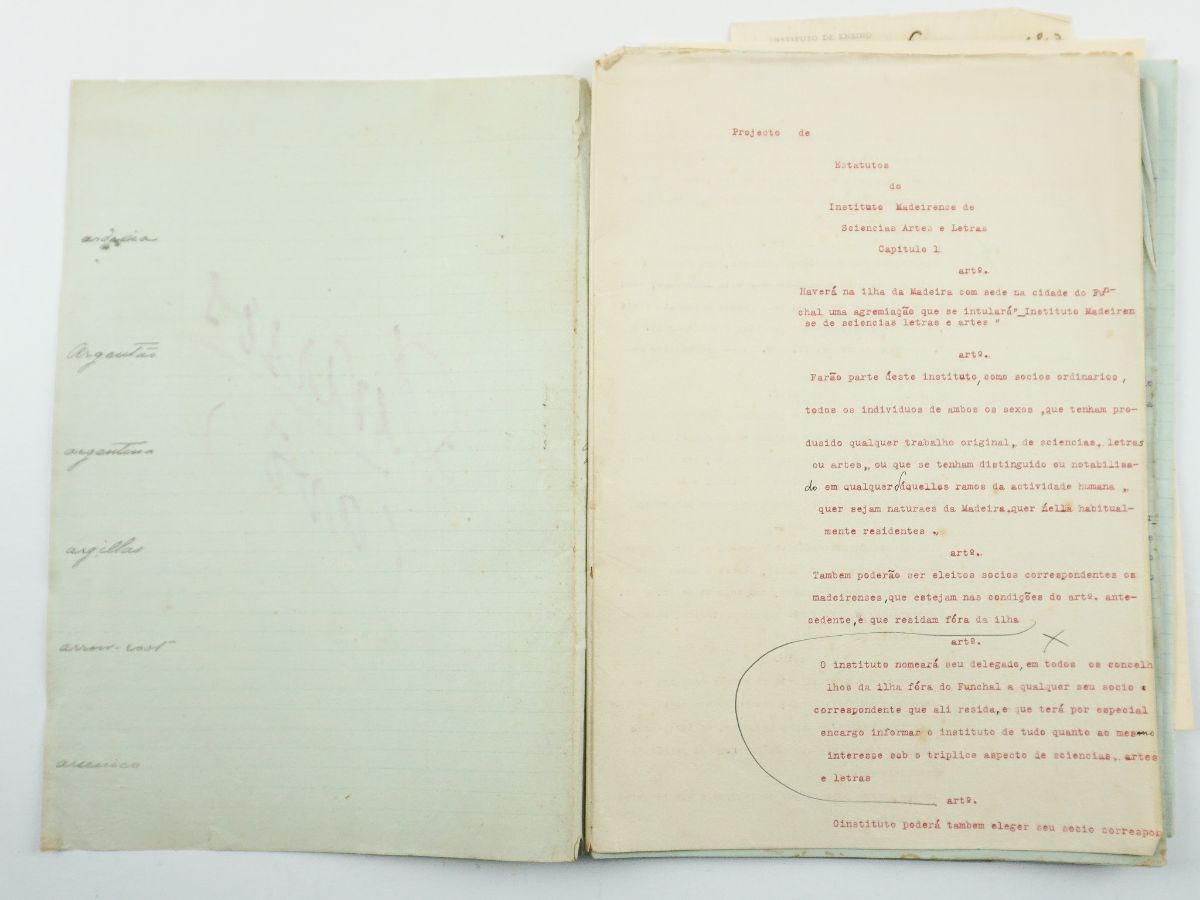 ardosia
Argentão
argentina
argillas
arrow-root
arsenico
INSTITUTO DE ENSINO
Projecto de
Estatutos
do
Instituto Madeirense de
Sciencias Artes e Letras
Capitulo 1
artº.
Haverá na ilha da Madeira com sede na cidade do Fun-
chal uma agremiação que se intulará"_Instituto Madeiren
se de sciencias letras e artes "
artº.
Farão parte deste instituto,como socios ordinarios,
todos os individuos de ambos os sexos ,que tenham pro-
dusido qualquer trabalho original, de sciencias, letras
ou artes, ou que se tenham distinguido ou notabilisa-
do em qualquer daquelles ramos da actividade humana ,
quer sejam naturaes da Madeira,quer nella habitual-
mente residentes .
artº.
Tambem poderão ser eleitos socios correspondentes os
madeirenses,que estejam nas condições do artº. ante-
cedente,e que residam fóra da ilha
artº.
O instituto nomeará seu delegado,em todos os concelh
lhos da ilha fóra do Funchal a qualquer seu socio
correspondente que ali resida,e que terá por especial
encargo informar o instituto de tudo quanto ao mesmo
interesse sob o triplice aspecto de sciencias, artes
e letras
artº.
Oinstituto poderá tambem eleger seu socio correspon